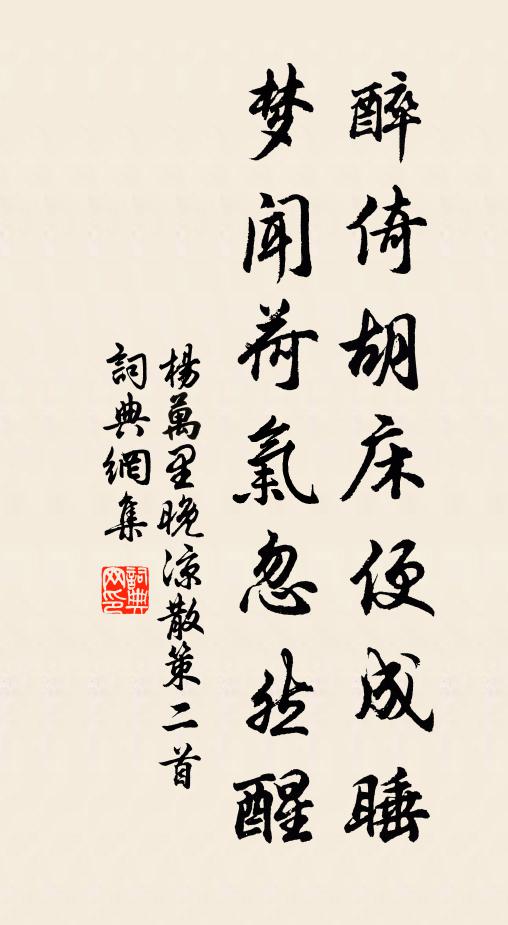 醉倚胡床便成睡
梦闻荷氣忽然醒
楊萬里晚凉散策二首
詞典網集
詞典网印